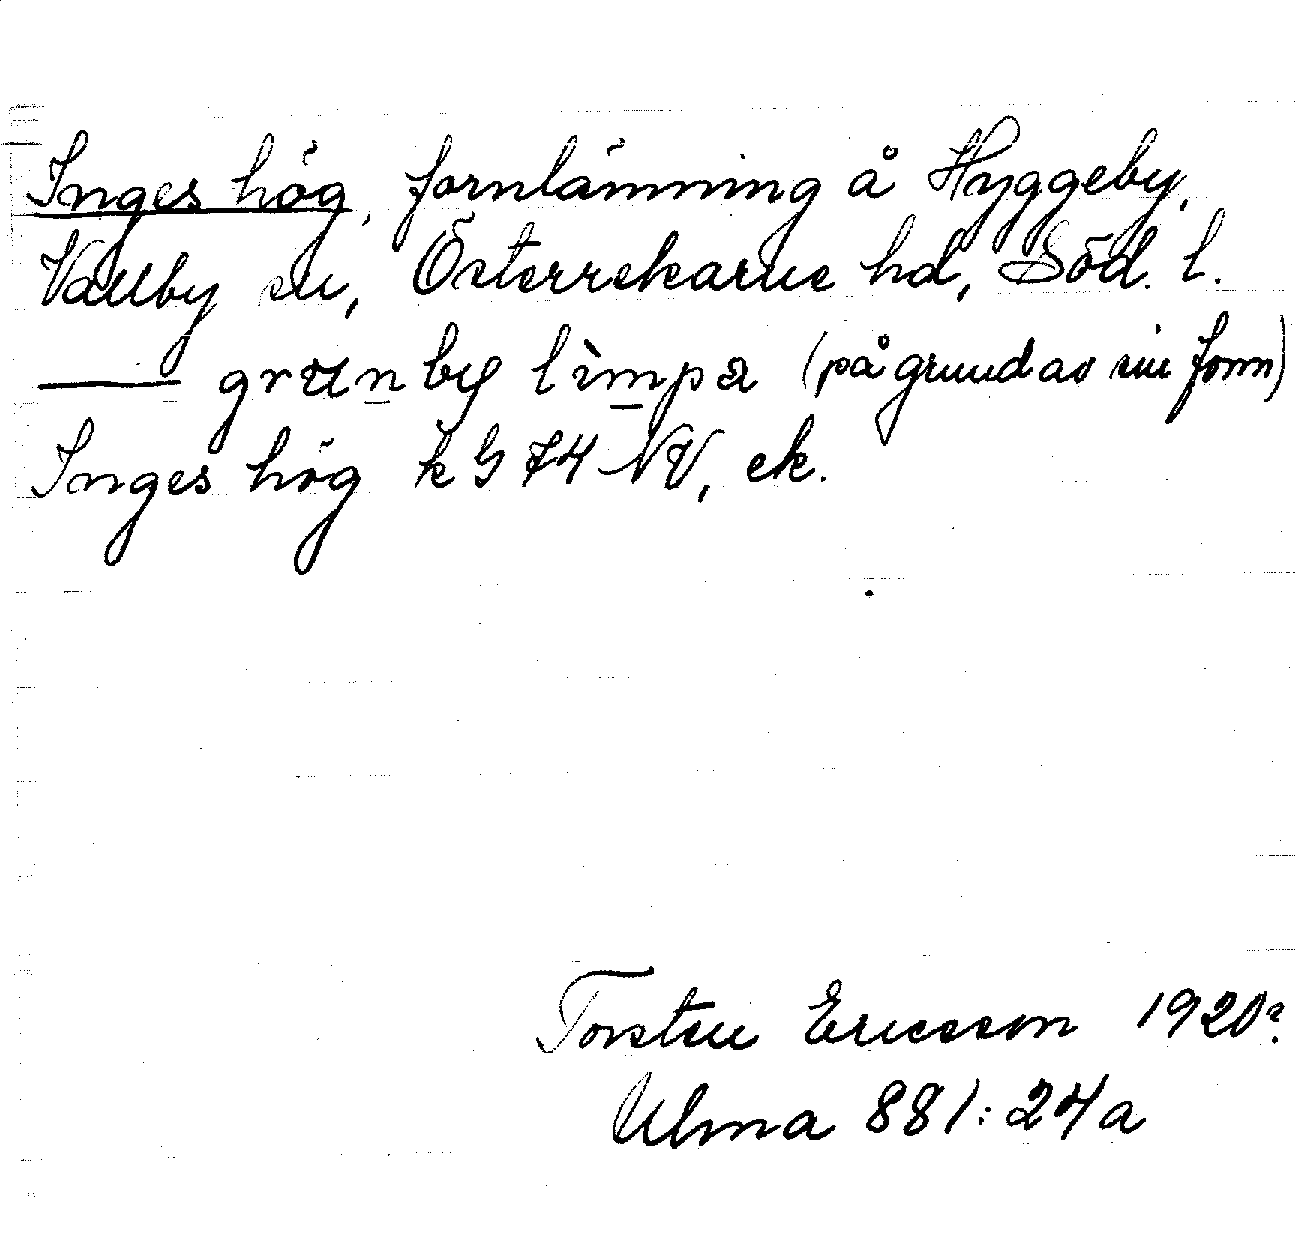 Inges hög, fornlämning å Hyggeby,
Vallby sn, Österrekarne hd, Söd. l.
—— grun̲by lìm̲pa (på grund av sin form)
Inges hög k G 74 NV, ek.
Torsten Ericsson 1920?
Ulma 881:24a